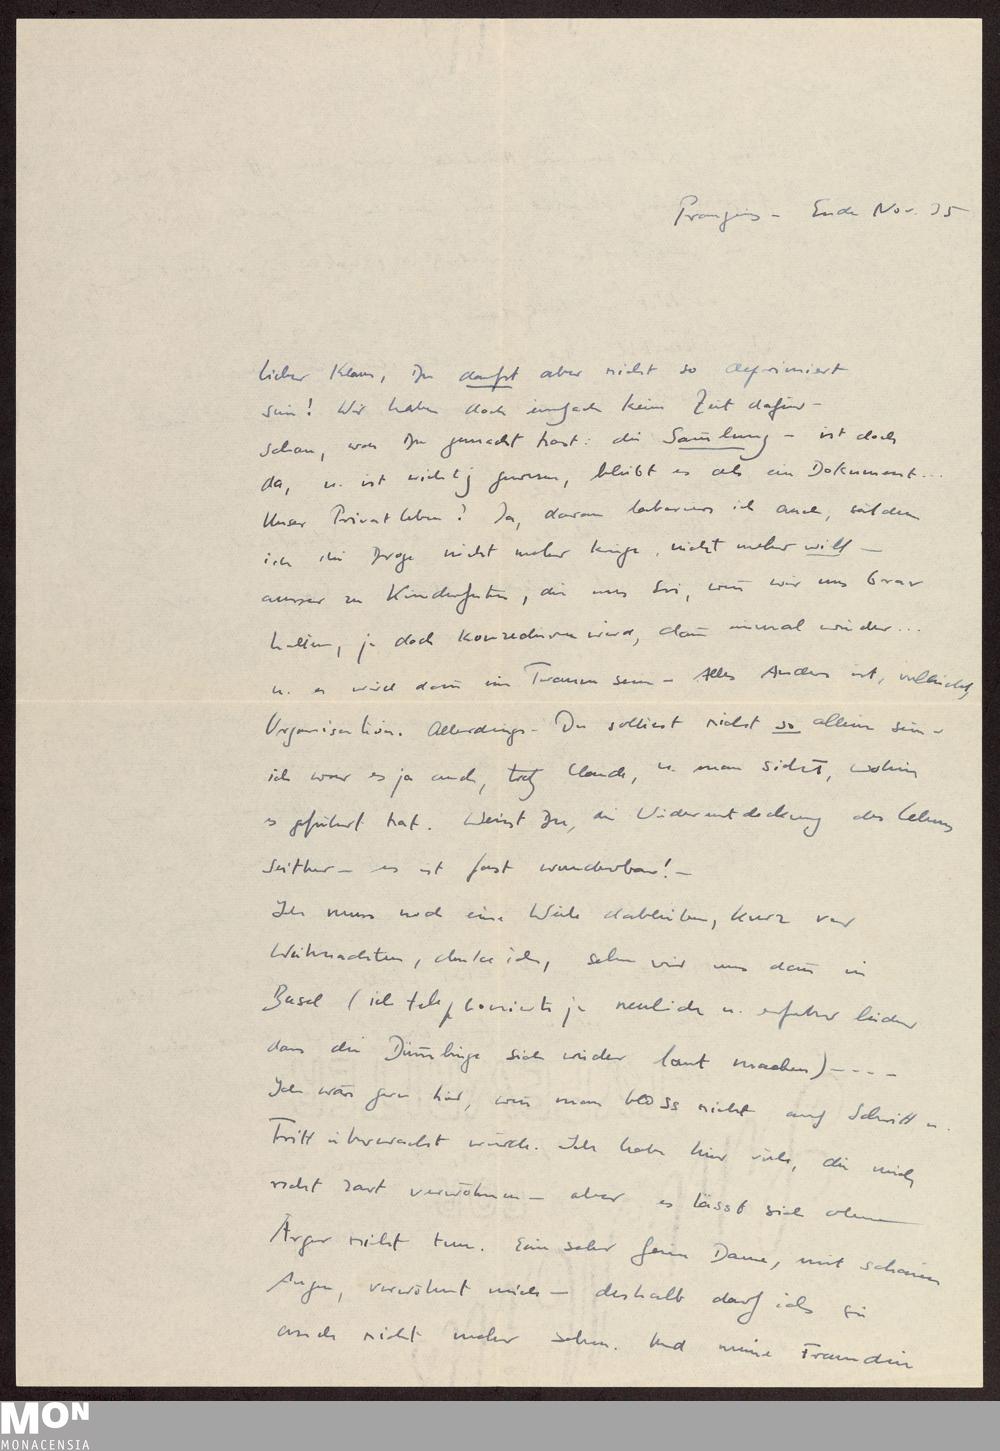 Prangins – Ende Nov. 35
Lieber Klaus, Du darfst aber nicht so deprimiert
sein! Wir haben doch einfach keine Zeit dafür –
schau, was Du gemacht hast: die Sammlung – ist doch
da, u. ist wichtig gewesen, bleibt es als ein Dokument...
Unser Privatleben? Ja, daran laboriere ich auch, seitdem
ich die Droge nicht mehr kriege, nicht mehr will –
ausser zu Kinderfesten, die uns, wenn wir uns brav
halten, ja doch konzediert, dann einmal wieder...
u. es wird dann ein Traum sein – Alles Andere ist, vielleicht,
Organisation. Allerdings – Du solltest nicht so allein sein –
ich war es ja auch, trotz Claude, u. man sieht, wohin
es geführt hat. Weisst Du, die Wiederentdeckung des Lebens
seither – es ist fast wunderbar! –
Ich muss noch eine Weile dableiben, kurz vor
Weihnachten, denke ich, sehen wir uns dann in
Basel (ich telephonierte ja neulich u. erfuhr leider
dass die sich wieder laut machen) – – – –
Ich wäre gern hier, wenn man bloss nicht auf Schritt u.
Tritt überwacht würde. Ich habe hier viele, die mich
recht zart verwöhnen – aber es lässt sich ohne
Ärger nicht tun. Eine sehr feine Dame, mit schönen
Augen, verwöhnt mich – deshalb darf ich sie
auch nicht mehr sehen. Und meine Freundin
MON
MONACENSIA